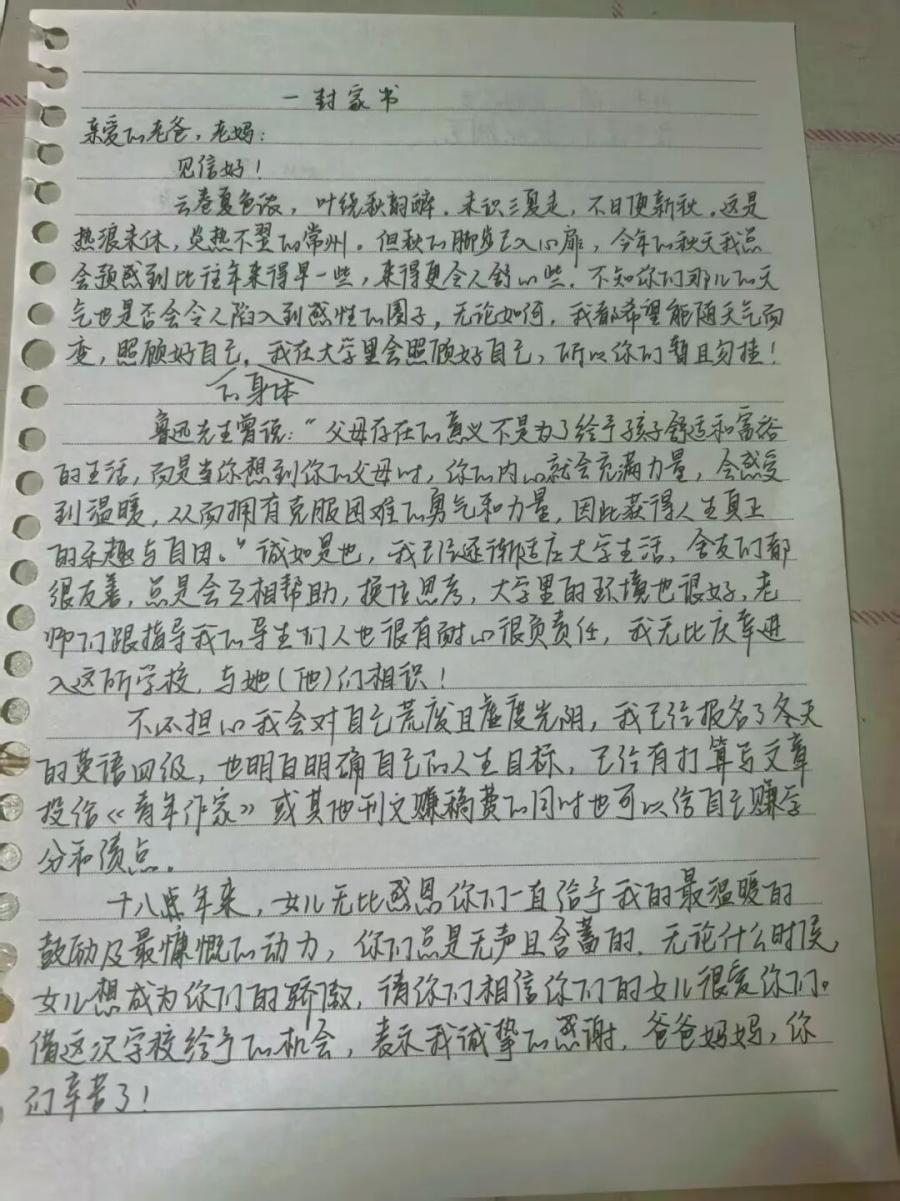 一封家书
亲爱的老爸,老妈:
见信好!
云卷夏色浓,叶绕秋韵醉。未识三夏走,不日便新秋。这是
热浪未休,炎热不翌的常州。但秋的脚步已入心扉,今年的秋天我总
会预感到比往年来得早一些,来得更令人舒心些。不知你们那儿的天
气也是否会令人陷入到感性的圈子,无论如何,我都希望能随天气而
变,照顾好自己。我在大学里会照顾好自己,所以你们暂且勿挂!
的身体
鲁迅先生曾说:“父母存在的意义不是为了给予孩子舒适和富裕
的生活,而是当你想到你的父母时,你的内心就会充满力量,会感受
到温暖,从而拥有克服困难的勇气和力量,因此获得人生真正
的乐趣与自由。”诚如是也,我已经逐渐适应大学生活,舍友们都
很友善,总是会互相帮助,换位思考,大学里的环境也很好,老
师们跟指导我的导生们人也很有耐心很负责任,我无比庆幸进
入这所学校,与她(他)们相识!
不必担心我会对自己荒废且虚度光阴,我已经报名了冬天
的英语四级,也明白明确自己的人生目标,已经有打算写文章
投给《青年作家》或其他刊文赚稿费的同时也可以给自己赚学
分和绩点。
十八年来,女儿无比感恩你们一直给予我的最温暖的
鼓励及最慷慨的动力,你们总是无声且含蓄的,无论什么时候,
女儿想成为你们的骄傲,请你们相信你们的女儿很爱你们。
借这次学校给予的机会,表示我诚挚的感谢,爸爸妈妈,你
们辛苦了!